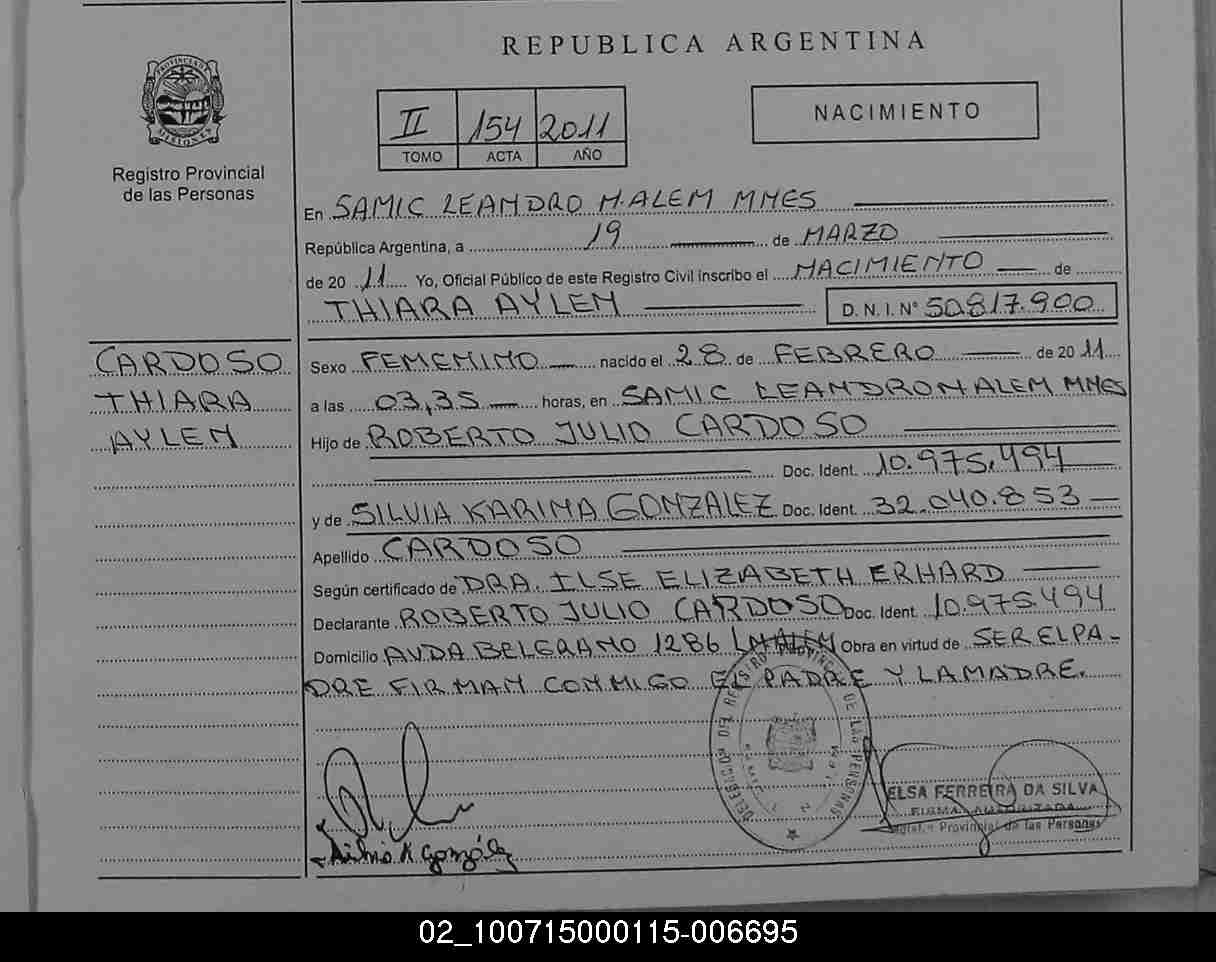 REPUBLICA ARGENTINA
PROVINCIA DE
MISIONES
Registro Provincial
de las Personas
II 154 2011
TOMO ACTA AÑO
NACIMIENTO
En SAMIC LEANDRO N. ALEM MNES
República Argentina, a 19 de MARZO
de 20 11 Yo, Oficial Público de este Registro Civil inscribo el NACIMIENTO de
THIARA AYLEN D. N. I. N° 50.817.900
CARDOSO
THIARA
AYLEN
Sexo FEMENINO nacido el 28 de FEBRERO de 2011
a las 03,35 horas, en SAMIC LEANDRO N ALEM MNES
Hijo de ROBERTO JULIO CARDOSO
Doc. Ident. 10.975.494
y de SILVIA KARINA GONZALEZ Doc. Ident. 32.040.853
Apellido CARDOSO
Según certificado de DRA. ILSE ELIZABETH ERHARD
Declarante ROBERTO JULIO CARDOSO Doc. Ident. 10.975.494
Domicilio AVDA BELGRANO 1286 L N ALEM Obra en virtud de SER EL PA-
DRE FIRMAN CONMIGO EL PADRE Y LA MADRE.
DELEGACION DEL REGISTRO PROVINCIAL DE LAS PERSONAS
ELSA FERREIRA DA SILVA
FIRMA AUTORIZADA
Registro Provincial de las Personas
Silvia K González
02_100715000115-006695